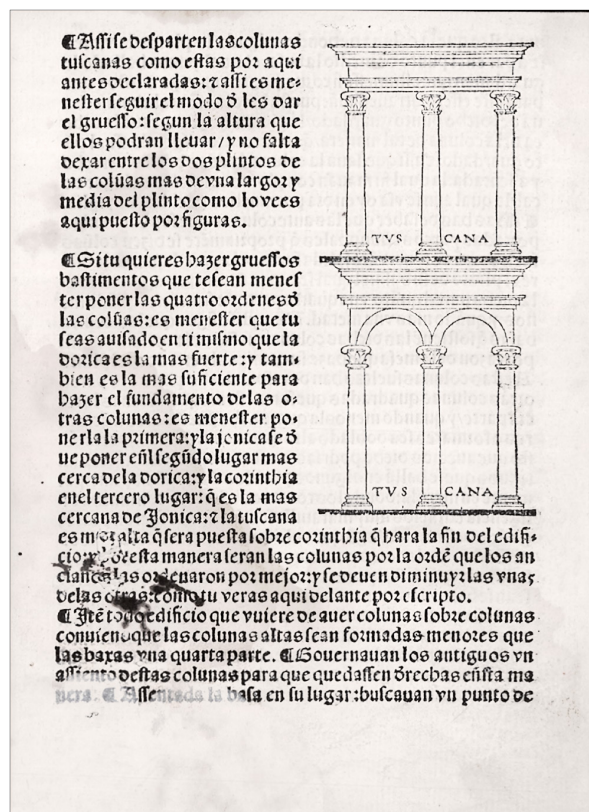 ¶Assi se desparten las colunas
tuscanas como estas por aqui
antes declaradas: ⁊ assi es me-
nester seguir el modo d̄ les dar
el gruesso: segun la altura que
ellos podran lleuar/y no falta
dexar entre los dos plintos de
las colūas mas de vna largor y
media del plinto como lo vees
aqui puesto por figuras.
¶Si tu quieres hazer gruessos
bastimentos que te sean menes
ter poner las quatro ordenes d̄
las colūas: es menester que tu
seas auisado en ti mismo que la
dorica es la mas fuerte: y tam-
bien es la mas suficiente para
hazer el fundamento delas o-
tras colunas: es menester po-
ner la la primera: y la jonica se d̄
ue poner eñl segūdo lugar mas
cerca dela dorica: y la corinthia
enel tercero lugar: q̄ es la mas
cercana de Jonica: ⁊ la tuscana
es mas alta q̄ sera puesta sobre corinthia q̄ hara la fin del edifi-
cio: y por esta manera seran las colunas por la ordē que los an
cianos las ordenaron por mejor: y se deuen diminuyr las vnas
delas otras: como tu veras aqui delante por escripto.
¶Itē todo edificio que vuiere de auer colunas sobre colunas
conuiene que las colunas altas sean formadas menores que
las baxas vna quarta parte. ¶Gouernauan los antiguos vn
assiento destas colunas para que quedassen d̄rechas eñsta ma
nera. ¶Assentada la basa en su lugar: buscauan vn punto de
TUS CANA
TUS CANA